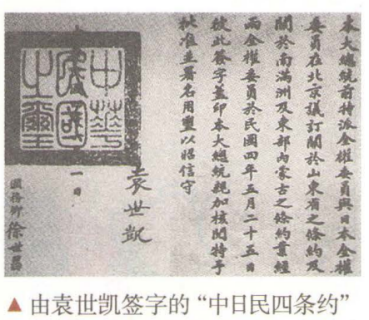 本大總統前特派全權委員與日本全權
委員在北京議訂關於山東省之條約及
關於南滿洲及東部內蒙古之條約業經
兩全權委員於民國四年五月二十五日
彼此簽字蓋印本大總統親加核閱特予
批准並署名用璽以昭信守
袁世凱
中華民國之璽
一日
國務卿 徐世昌
▲ 由袁世凯签字的“中日民四条约”